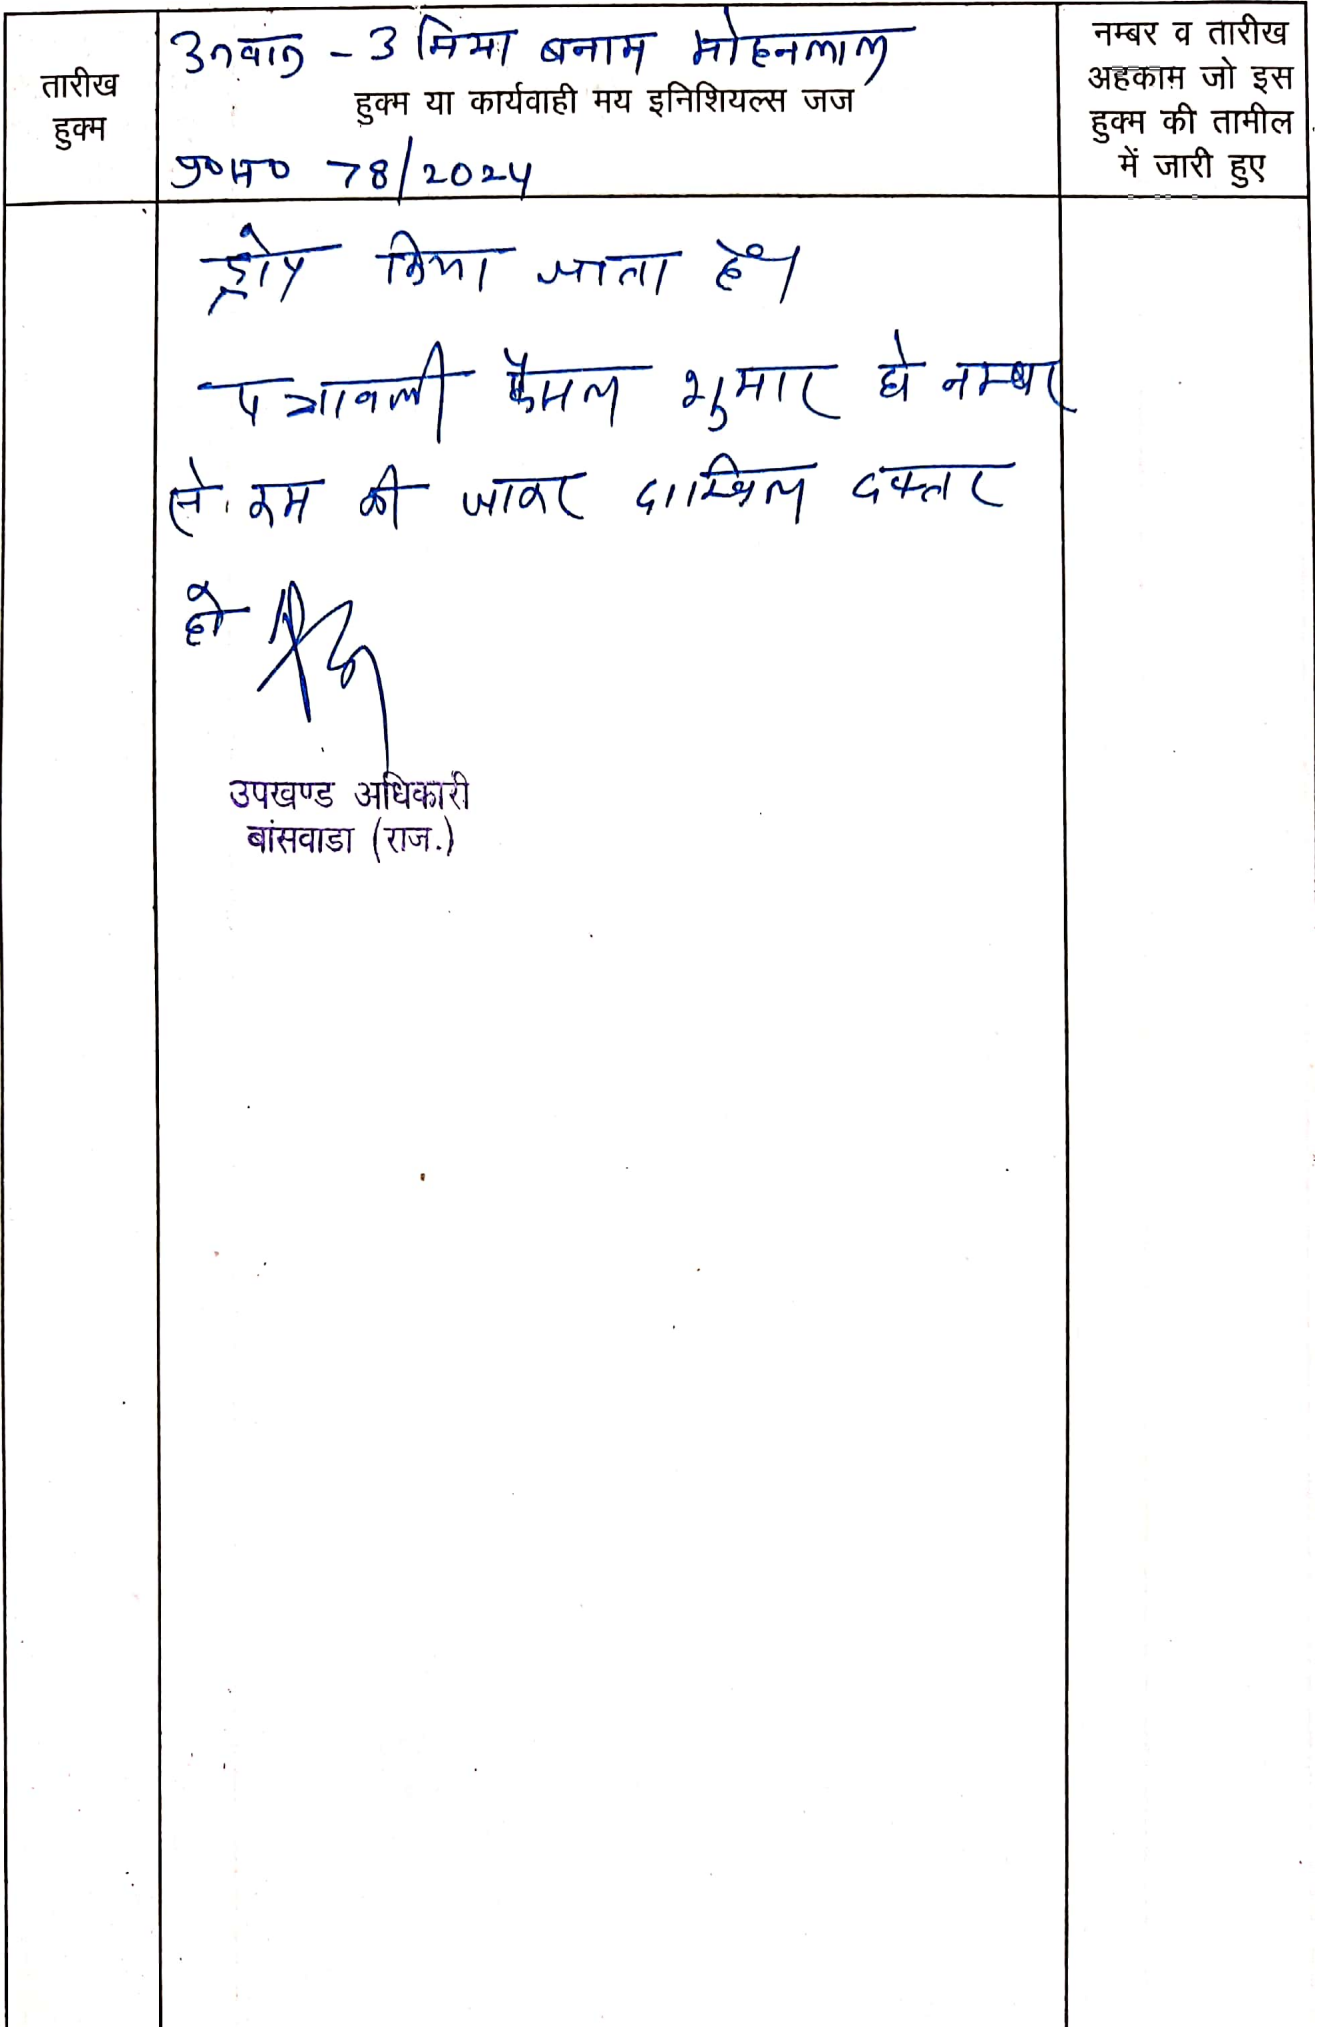 तारीख
हुक्म
उनवान - उमिया बनाम मोहनलाल
हुक्म या कार्यवाही मय इनिशियल्स जज
प्र०स० 78/2024
नम्बर व तारीख
अहकाम जो इस
हुक्म की तामील
में जारी हुए
ड्रोप किया जाता है।
पत्रावली फैसल शुमार हो नम्बर
से कम की जाकर दाखिल दफ्तर
हो
उपखण्ड अधिकारी
बांसवाडा (राज.)